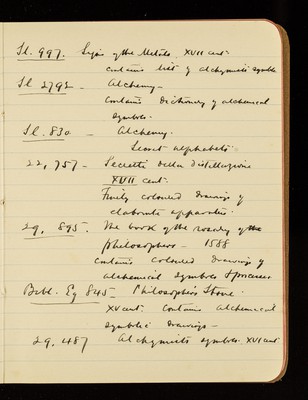 Sl. 997. Signs of the Metals XVII cent.
contains list of alchymists symbols
Sl 2792 - Alchemy -
Contains Dictionary of alchemical
symbols.
Sl. 830 - Alchemy.
Secret alphabets.
22,757 - Secretti della distillazione
XVII cent.
Finely coloured drawings of
elaborate apparatus.
29,895. The book of the rosary of the
philosophers - 1588
contains coloured drawings of
alchemical symbols &
Bibl. Eg 845 - Philosophers Stone.
XV cent. Contains alchemical
symbolic drawings -
29,487 Alchymists symbols. XVI cent